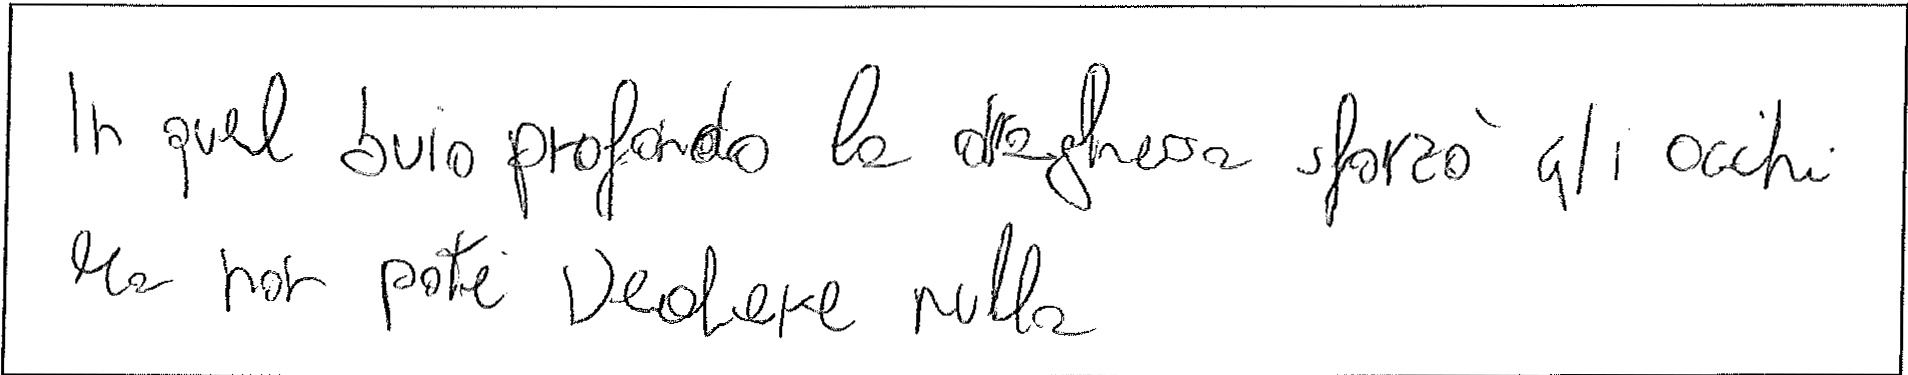 In quel buio profondo la draghessa sforzò gli occhi
Ma non poté Vedere nulla